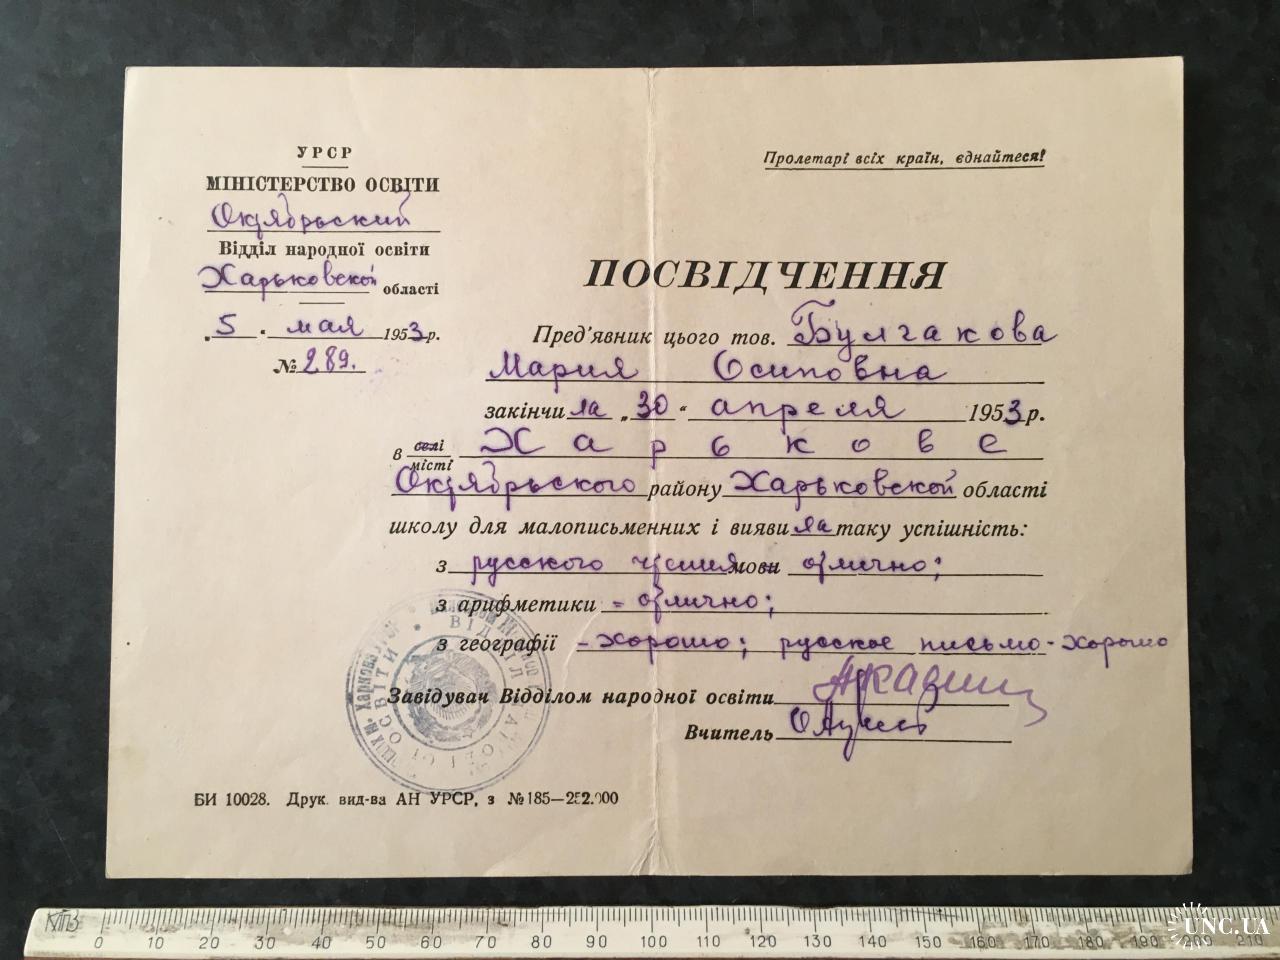 УРСР
МІНІСТЕРСТВО ОСВІТИ
Октябрьский
Відділ народної освіти
Харьковской області
„5" мая 1953 р.
№ 289.
Пролетарі всіх країн, єднайтеся!
ПОСВІДЧЕННЯ
Пред'явник цього тов. Булгакова
Мария Осиповна
закінчила „30" апреля 1953 р.
в селі Харькове
місті
Октябрьского району Харьковской області
школу для малописьменних і виявила таку успішність:
з русского чтения мови отлично;
з арифметики - отлично;
з географії - хорошо; русское письмо - хорошо
Завідувач Відділом народної освіти
Вчитель
ВІДДІЛ НАРОДНОЇ ОСВІТИ
БИ 10028. Друк. вид-ва АН УРСР, з №185—252.000
0 10 20 30 40 50 60 70 80 90 100 110 120 130 140 150 160 170 180 190 200 210
UNC.UA